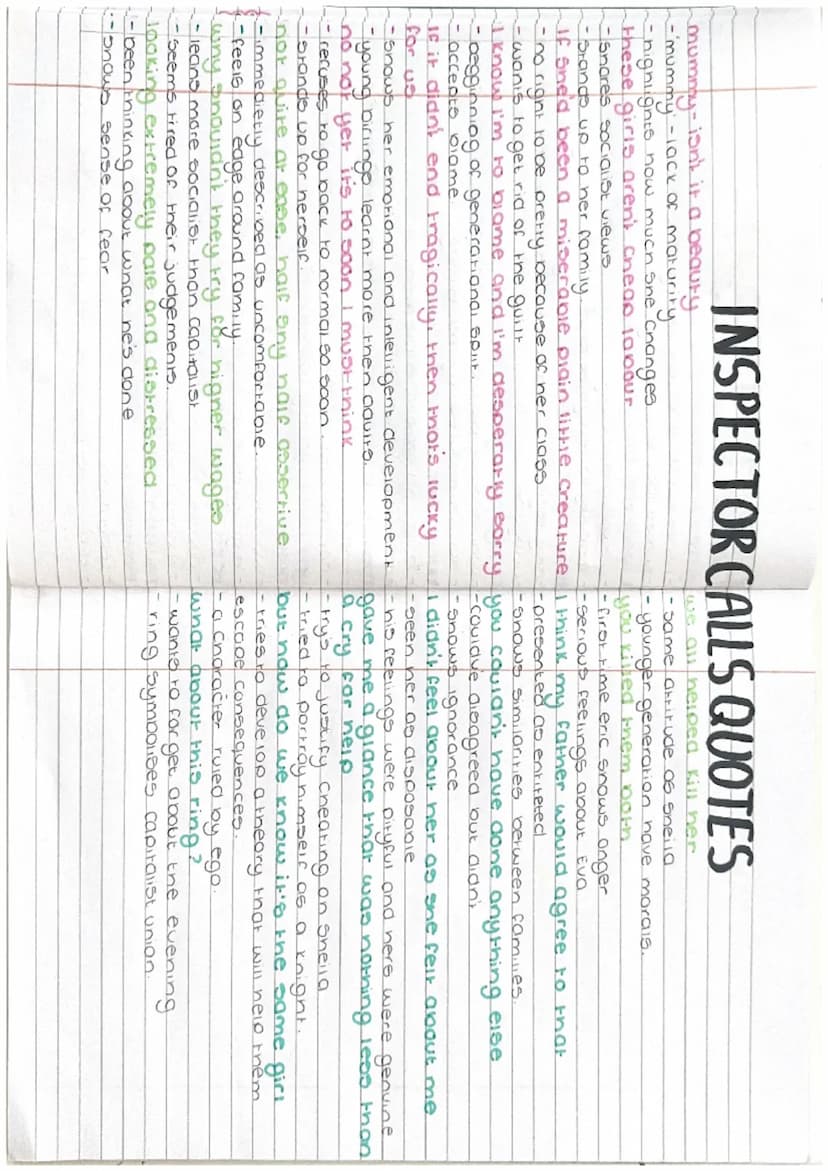 INSPECTOR CALLS QUOTES
mummy- isn't it a beauty
- 'mummy' - lack of maturity
- highlights how much she changes
these girls aren't cheap labour
- shares socialist views
- stands up to her family.
If she'd been a miserable plain little creature
- no right to be pretty because of her class
- wants to get rid of the guilt
I know I'm to blame and I'm desperatly sorry
- beginning of generational split.
- accepts blame
If it didn't end tragically, then that's lucky
for us
- shows her emotional and intelligent development
- young birlings learnt more then adults.
no not yet it's to soon I must think
- refuses to go back to normal so soon.
- stands up for herself.
not quite at ease, half shy half assertive
- immedietly described as uncomfortable.
- feels on edge around family
why shouldn't they try for higher wages
- leans more socialist than capitalist
- seems tired of their judgements.
looking extremely pale and distressed
- been thinking about what he's done
- shows sense of fear
we all helped kill her
- same attitude as sheila
- younger generation have morals.
you killed them both
- first time eric shows anger
- serious feelings about Eva
I think my father would agree to that
- presented as entiteled
- shows similarities between families.
you couldn't have done anything else
- could've disagreed but didn't
- shows ignorance
I didn't feel about her as she felt about me
- seen her as disposable
- his feelings were pityful and hers were genuine
gave me a glance that was nothing less than
a cry for help
- try's to justify cheating on sheila
- tried to portray himself as a knight.
but how do we know it's the same girl
- tries to develop a theory that will help them
escape consequences.
- a character ruled by ego.
what about this ring?
- wants to forget about the evening
- ring symbolises capitalist union.